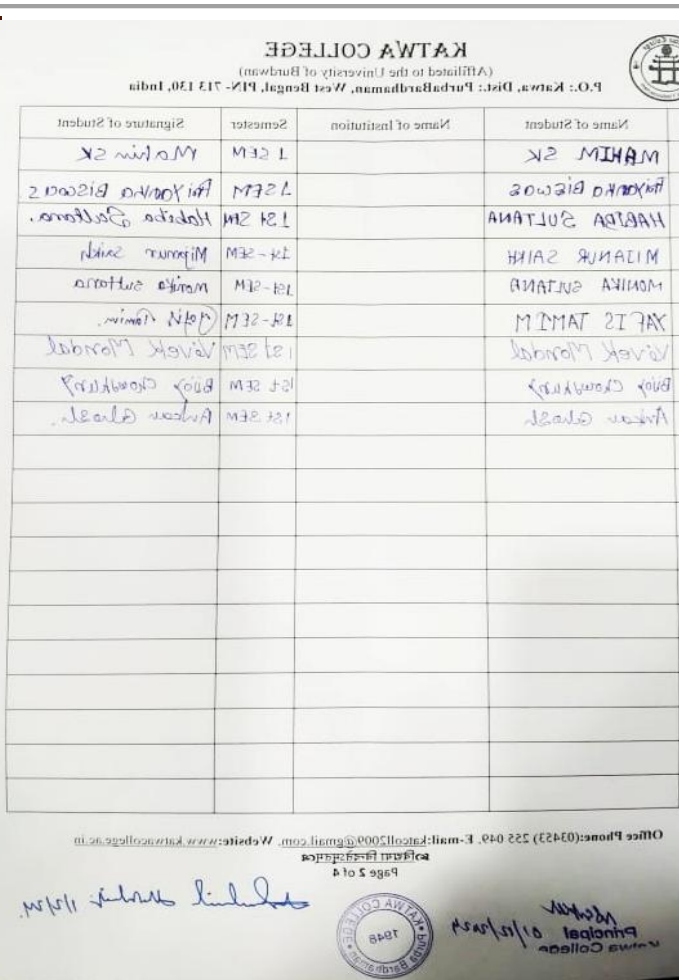 KATWA COLLEGE
(Affiliated to the University of Burdwan)
P.O.: Katwa, Dist.: PurbaBardhaman, West Bengal, PIN- 713 130, India
Name of Student Name of Institution Semester Signature of Student
MAHIM SK 1 SEM Mahim SK
Priyanka Biswas 1 SEM Priyanka Biswas
HABIBA SULTANA 1st SEM Habiba Sultana.
MIJANUR SAIKH 1st-SEM Mijanur Saikh
MONIKA SULTANA 1st-SEM Monika Sultana
YAFIS TAMIM 1st-SEM Yafis Tamim.
Vivek Mondal 1st SEM Vivek Mondal
Bijoy Chowdhury 1st SEM Bijoy Chowdhury
Ankan Ghosh 1st SEM Ankan Ghosh.
Office Phone:(03453) 255 049. E-mail:katcoll2009@gmail.com. Website:www.katwacollege.ac.in
Page 2 of 4
KATWA COLLEGE
1948
Purba Bardhaman
Principal
Katwa College